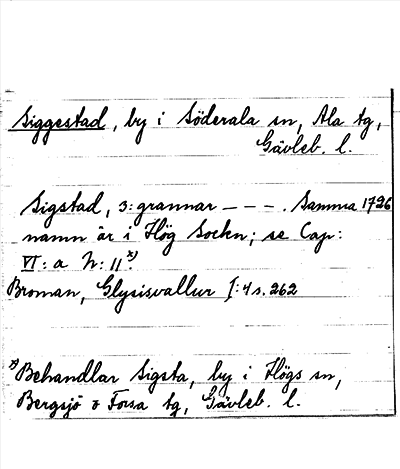 Siggestad, by i Söderala sn, Ala tg,
Gävleb. l.
Sigstad, 3: grannar - - - . Samma 1726
namn är i Hög Sockn; se Cap:
VI: a N: 11 x)
Broman, Glysisvallur I: 4 s. 262
x) Behandlar Sigsta, by i Högs sn,
Bergsjö o Forsa tg, Gävleb. l.